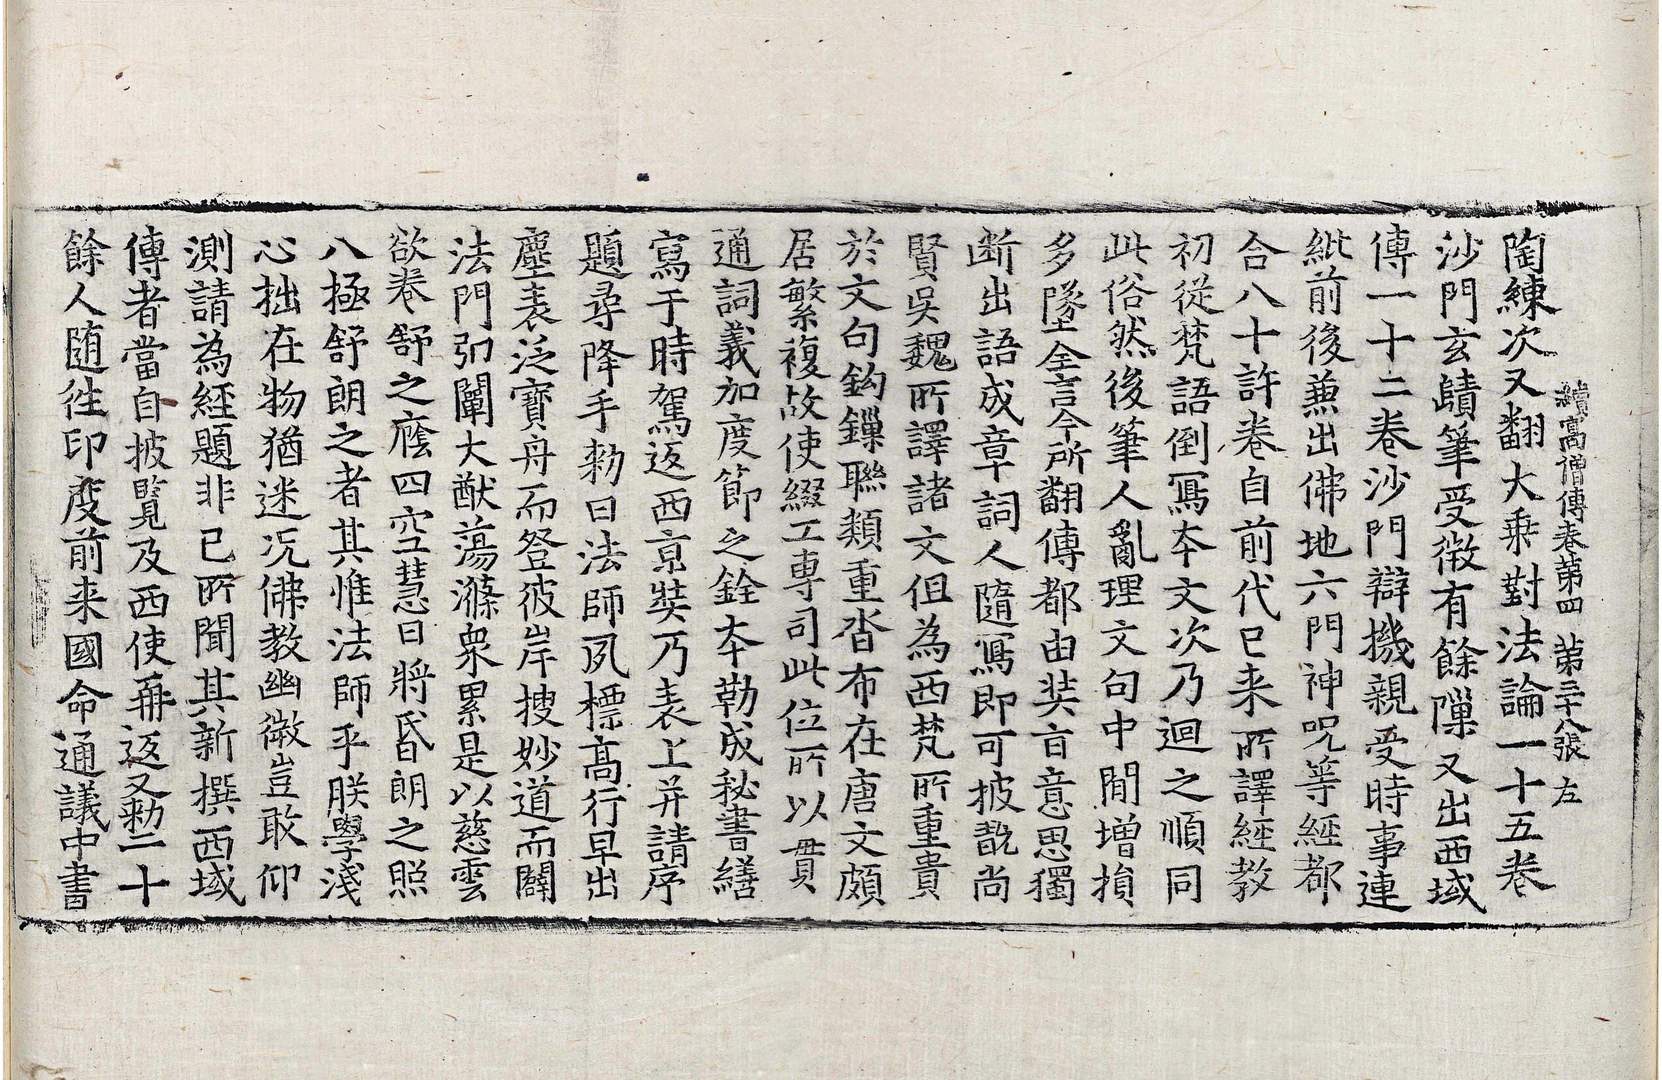 續高僧傳卷第四 第三十八張 左
陶練次又翻大乗對法論一十五卷
沙門玄賾筆受微有餘隟又出西域
傳一十二卷沙門辯機親受時事連
紕前後兼出佛地六門神呪等經都
合八十許卷自前代已来所譯經教
初從梵語倒寫夲文次乃迴之順同
此俗然後筆人亂理文句中間增損
多墜全言今所翻傳都由奘旨意思獨
断出語成章詞人隨寫即可披翫尚
賢吳魏所譯諸文但為西梵所重貴
於文句鈎鏁聯類重沓布在唐文頗
居繁複故使綴工専司此位所以貫
通詞義加度節之銓夲勒成秘書繕
寫于時駕返西京奘乃表上并請序
題尋降手勑曰法師夙標高行早出
塵表泛寶舟而登彼岸搜妙道而闢
法門弘闡大猷蕩滌衆累是以慈雲
欲卷舒之廕四空慧日將昏朗之照
八極舒朗之者其惟法師乎朕學淺
心拙在物猶迷况佛教幽微豈敢仰
測請為經題非己所聞其新撰西域
傳者當自披覧及西使再返又勑二十
餘人随徃印度前来國命通議中書